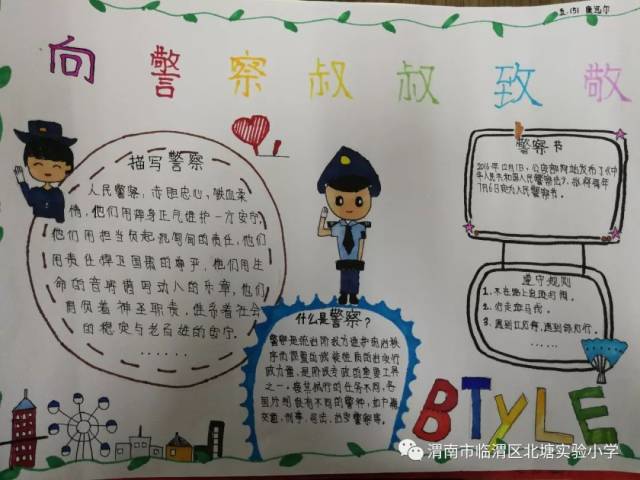 五.(5) 康远尔
向警察叔叔致敬
描写警察
人民警察,赤胆忠心,铁血柔
情,他们用浑身正气维护一方安宁,
他们用担当负起
的责任,他们
用责任捍卫国旗的尊严,他们用生
命的音符谱写动人的乐章,他们
肩负着神圣职责,维系着社会
的稳定与老百姓的安宁.
......
什么是警察?
警察是统治阶级为维护统治秩
序而设置的武装性质的国家行
政力量,是阶级专政的重要工具
之一,按其执行的任务不同,各
国分别设有不同的警种,如户籍
交通,刑事,司法,
警察等。
警察书
2016年12月1日,公安部网站发布了《中
华人民共和国人民警察法》,
将每年
7月6日定为人民警察节。
遵守规则
1.不在路上追逐打闹。
2.
走斑马线。
3.遇到红灯停,遇到绿灯行。
......
BTYLE
渭南市临渭区北塘实验小学